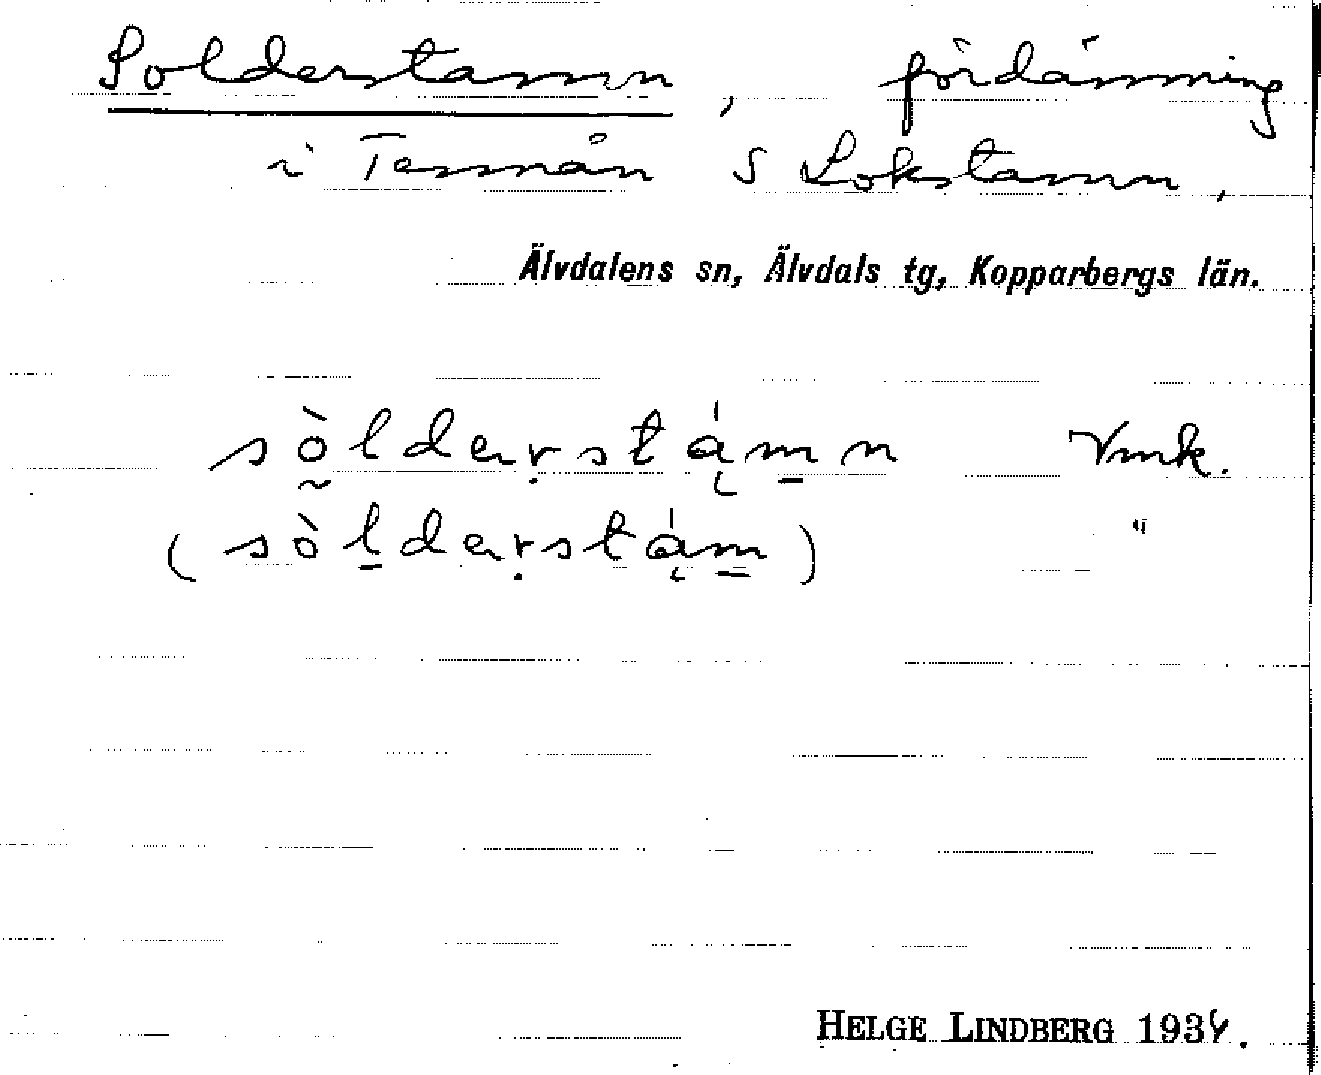 Solderstamn, fördämning
i Tennån S Lokstamn,
Älvdalens sn, Älvdals tg, Kopparbergs län.
sò̰ldeṛstą́m̲n Vmk.
(sòl̲deṛstą́m̲) "
HELGE LINDBERG 1934.